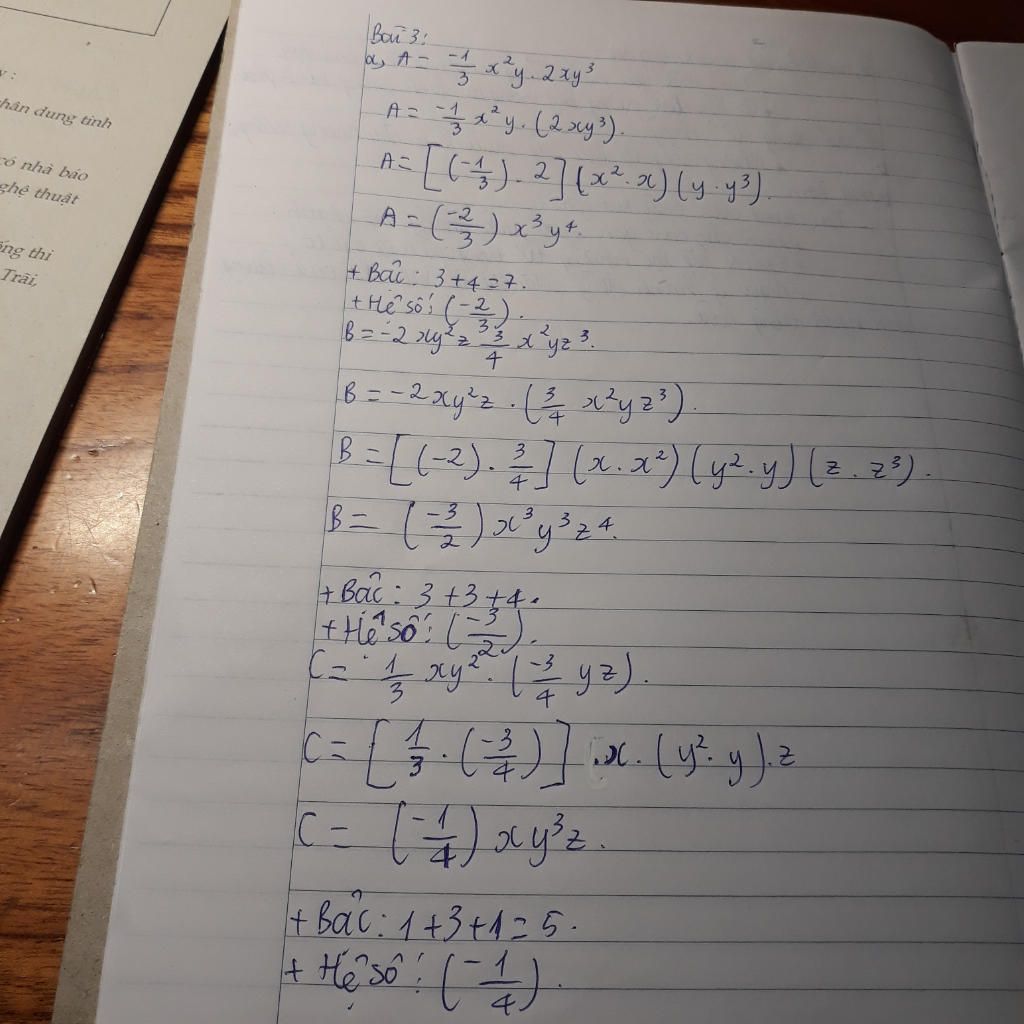 y :
hân dung tinh
có nhà báo
ghệ thuật
ống thi
Trãi,
Bài 3:
a, A = -1/3 x²y . 2xy³
A = -1/3 x²y . (2xy³).
A = [(-1/3) . 2] (x² . x) (y . y³).
A = (-2/3) x³y⁴.
+ Bậc : 3+4=7.
+ Hệ số : (-2/3).
B = -2xy²z 3/4 x²yz³.
B = -2xy²z . (3/4 x²yz³).
B = [(-2) . 3/4] (x . x²) (y² . y) (z . z³).
B = (-3/2) x³y³z⁴.
+ Bậc : 3+3+4.
+ Hệ số : (-3/2).
C = 1/3 xy² . (-3/4 yz).
C = [1/3 . (-3/4)] . x . (y² . y) . z
C = (-1/4) xy³z.
+ Bậc : 1+3+1=5.
+ Hệ số : (-1/4).